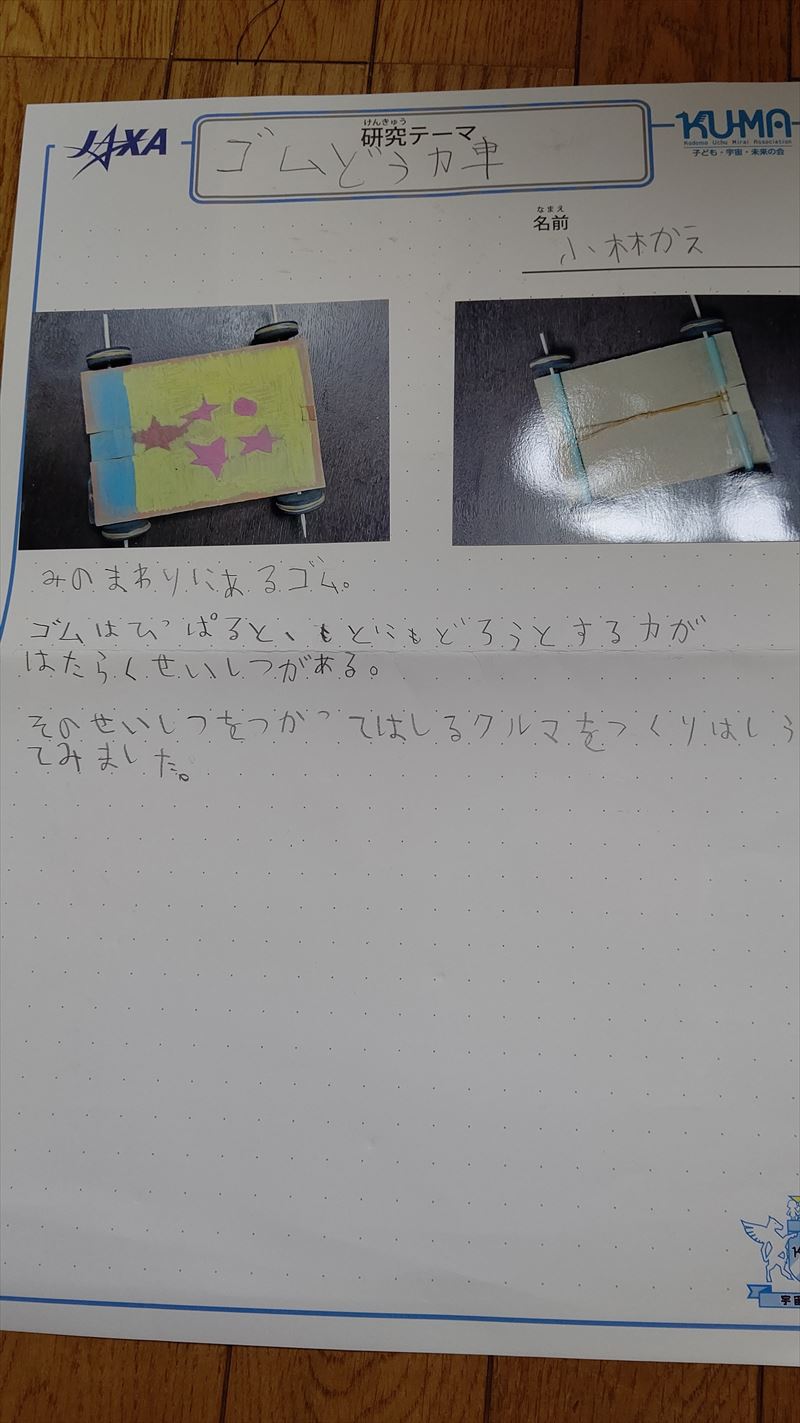 JAXA
けんきゅう
研究テーマ
ゴムどうカ車
KU-MA
Kodomo Uchu Mirai Association
子ども・宇宙・未来の会
なまえ
名前
小林かえ
みのまわりにあるゴム。
ゴムはひっぱると、もとにもどろうとする力が
はたらくせいしつがある。
そのせいしつをつかってはしるクルマをつくりはしら
てみました。
宇宙